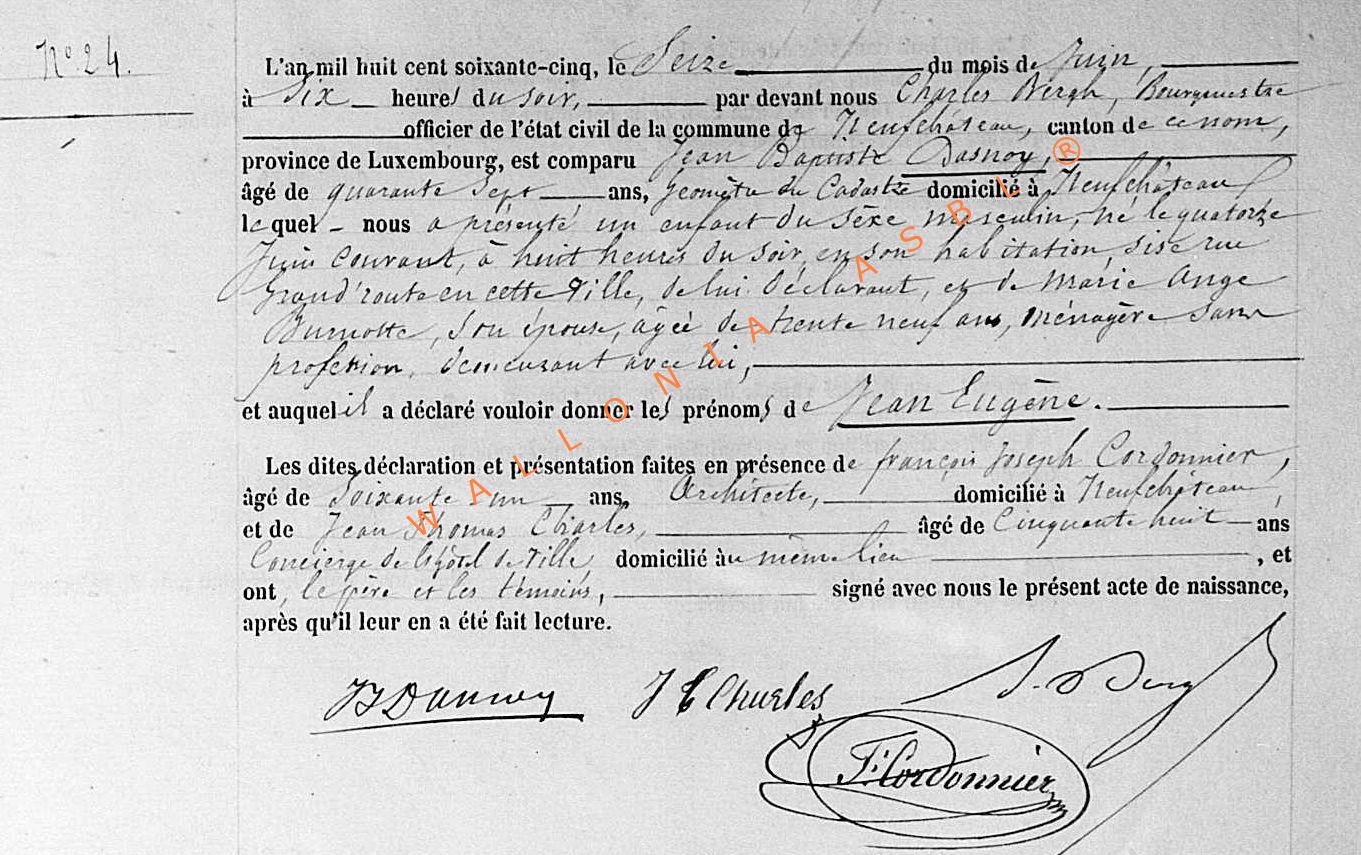 N° 24.
L'an mil huit cent soixante-cinq, le Seize du mois de Juin,
à Six heures du soir, par devant nous Charles Bergh, Bourgmestre
officier de l'état civil de la commune de Neufchâteau, canton de ce nom,
province de Luxembourg, est comparu Jean Baptiste Dasnoy,
âgé de quarante Sept ans, Géomètre du Cadastre domicilié à Neufchâteau
lequel nous a présenté un enfant du sèxe masculin, né le quatorze
Juin courant, à huit heures du soir, en son habitation, sise rue
Grand'route en cette Ville, de lui déclarant, et de Marie Ange
Burnotte, son épouse, âgée de trente neuf ans, ménagère sans
profession, demeurant avec lui,
et auquel il a déclaré vouloir donner les prénoms de Jean Eugène.
Les dites déclaration et présentation faites en présence de françois Joseph Cordonnier,
âgé de Soixante un ans, Architecte, domicilié à Neufchâteau,
et de Jean Thomas Charles, âgé de Cinquante huit ans
Concierge de l'hôtel de Ville, domicilié au même lieu, et
ont, le père et les témoins, signé avec nous le présent acte de naissance,
après qu'il leur en a été fait lecture.
JBDasnoy J T Charles
F: Cordonnier
WALLONIA ASBL ®